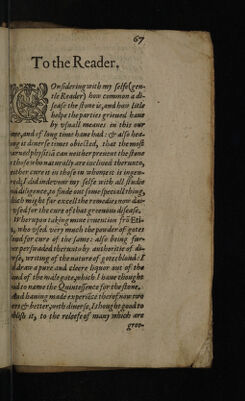 67
To the Reader.
COnsidering with my selfe (gen-
tle Reader) how common a di-
sease the stone is, and how litle
helpe the parties grieued haue
by vsuall meanes in this our
time, and of long time haue had: & also hea-
ring is diuerse times obiected, that the most
learned phisitiā can neither preuent the stone
in those who naturally are inclined therunto,
neither cure it in those in whome it is ingen-
dred; I did indeuour my selfe with all studie
and diligence, to finde out some speciall thing,
which might far excell the remedies now di-
uised for the cure of that greeuous disease.
Wherupon taking mine inuention frō Eti-
us, who vsed very much the powder of gotes
bloud for cure of the same: also being fur-
ther perswaded therunto by authoritie of di-
uerse, writing of the nature of gotes bloud: I
did draw a pure and cleere liquor out of the
bloud of the male gote, which I haue thought
good to name the Quintessence for the stone,
And hauing made experiēce therof now two
yeres & better, with diuerse, I thought good to
publish it, to the reliefe of many which are
gree-